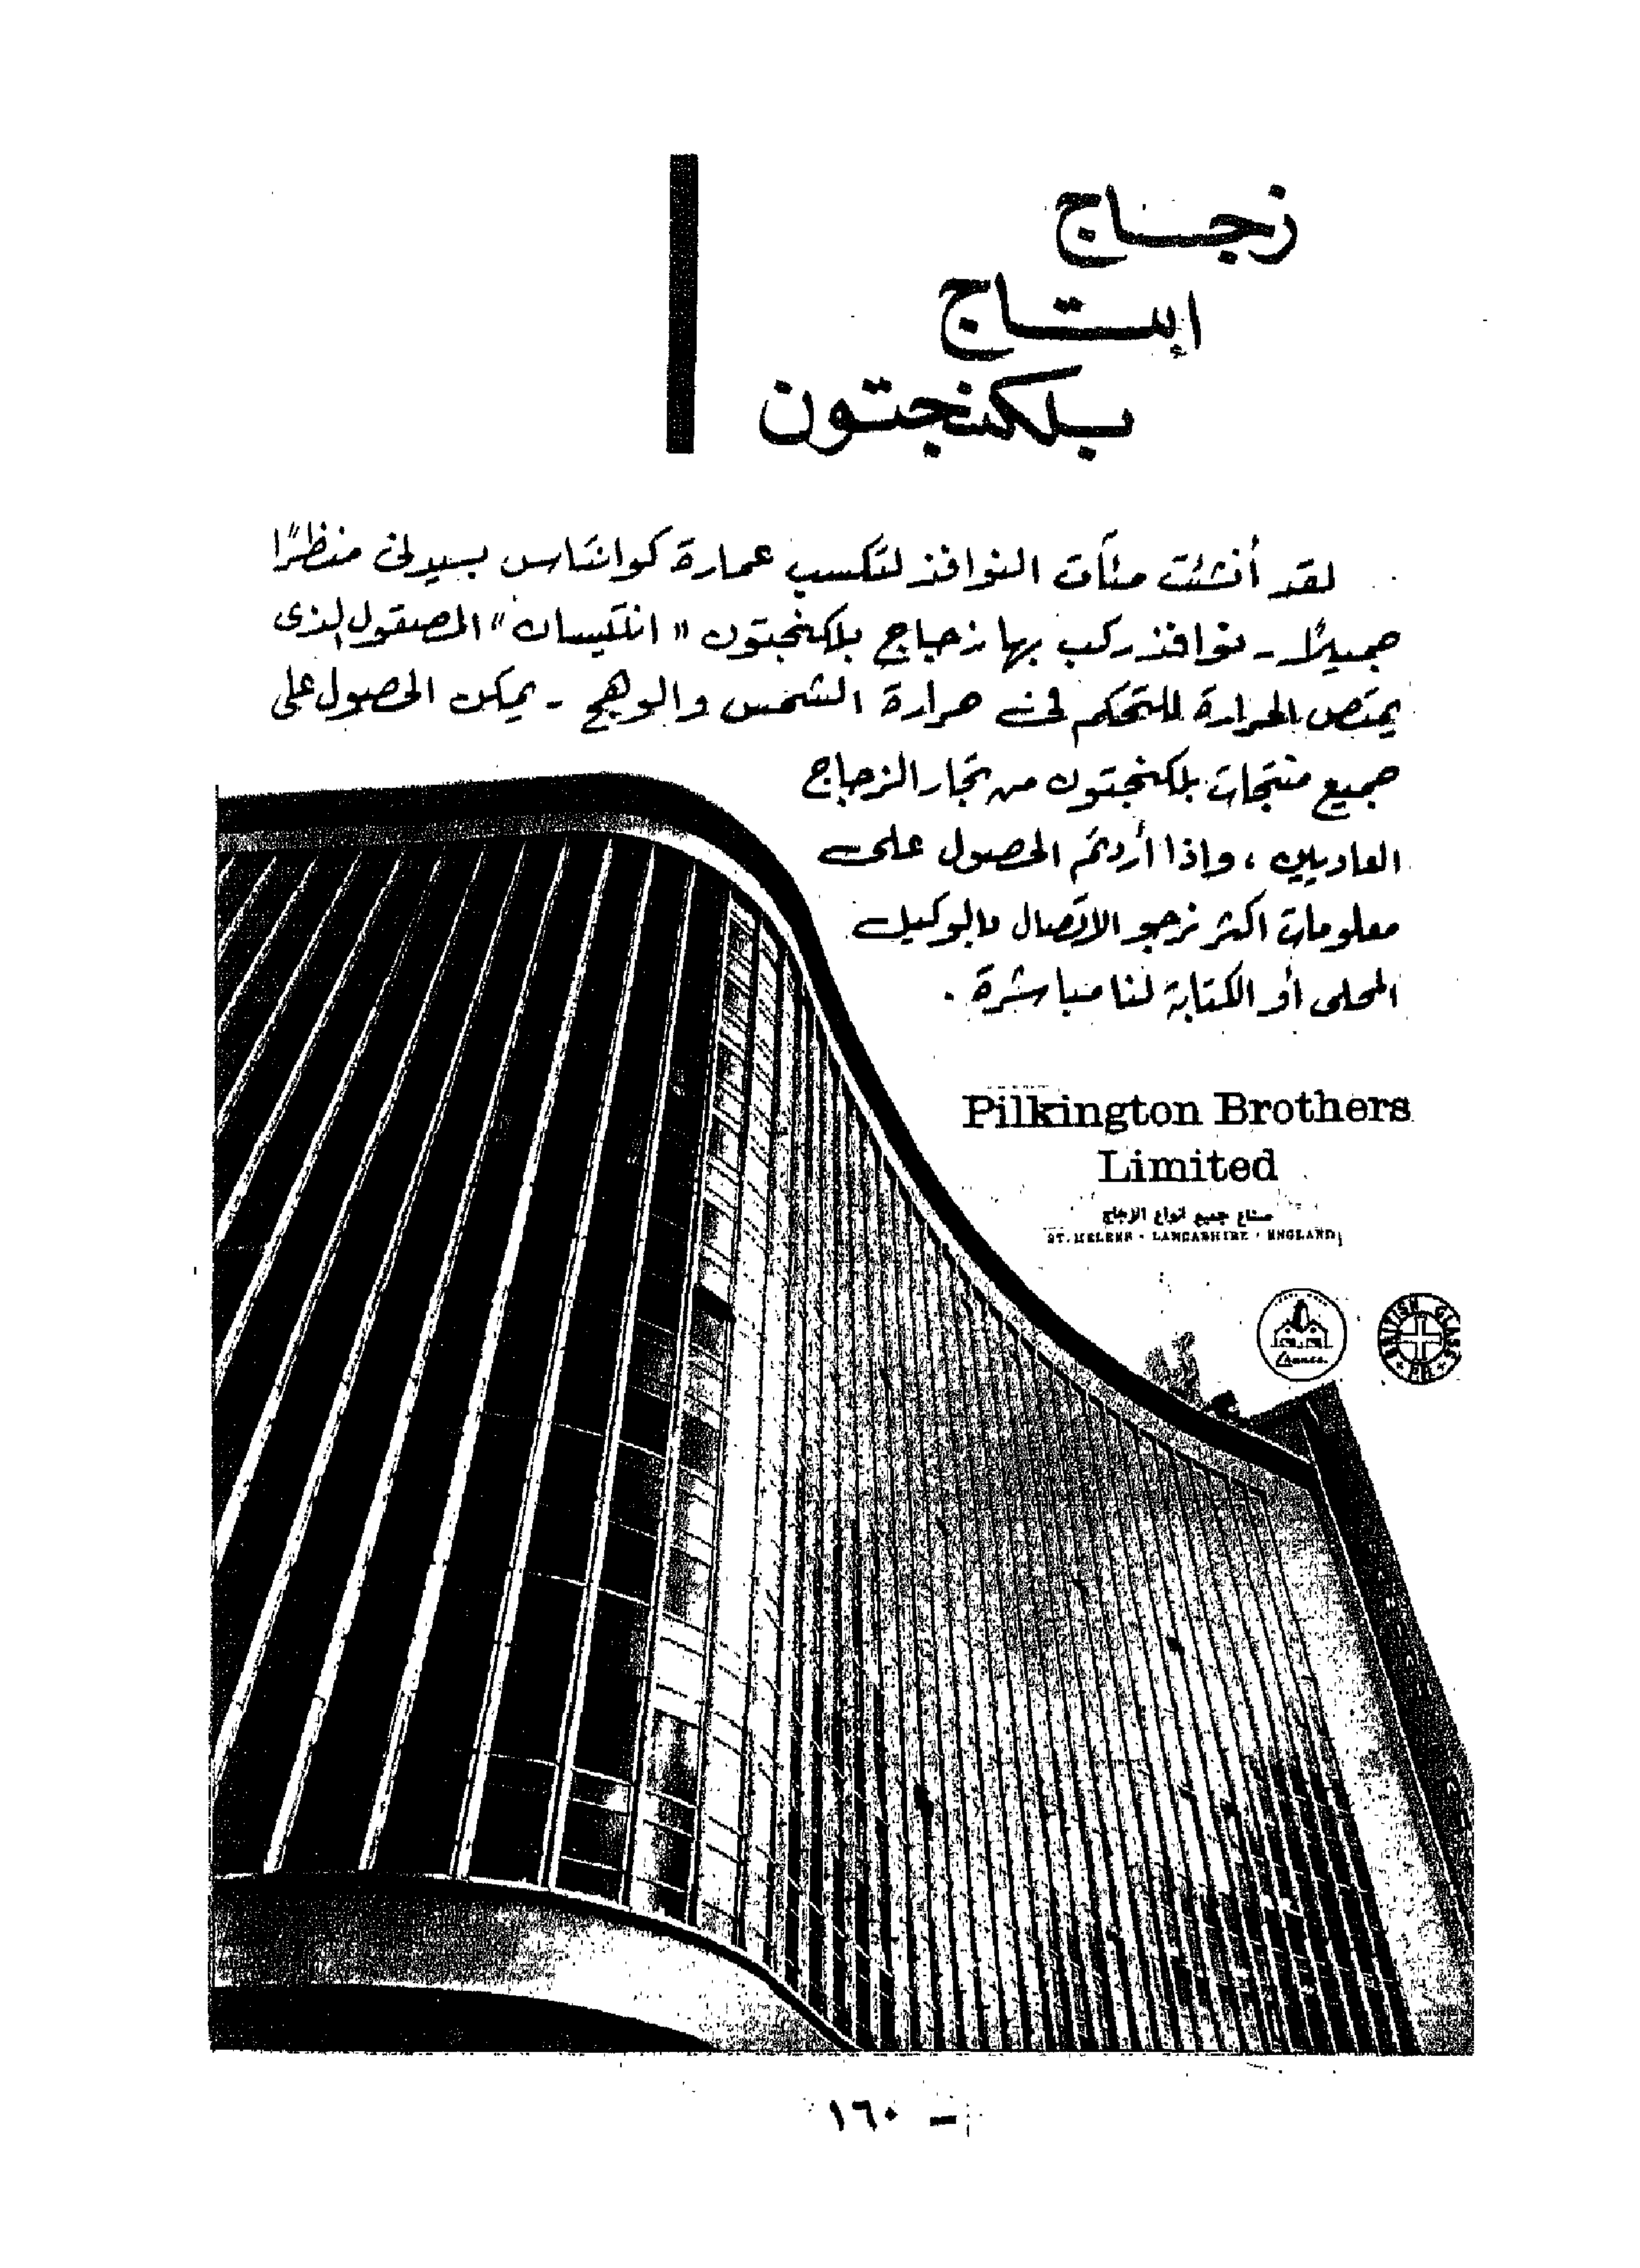 زجاج
إنتاج
بلكنجتون
لقد أنشئت مئات النوافذ لتكسب عمارة كوانتاس بسيدنى منظرًا
جميلًا - نوافذ ركب بها زجاج بلكنجتون "انتكيسان" المصقول الذى
يمتص الحرارة للتحكم فى حرارة الشمس والوهج - يمكن الحصول على
جميع منتجات بلكنجتون من تجار الزجاج
العاديين ، وإذا أردتم الحصول على
معلومات اكثر نرجو الاتصال بالوكيل
المحلى أو الكتابة لنا مباشرة .
Pilkington Brothers
Limited
صناع جميع انواع الزجاج
ST. HELENS · LANCASHIRE · ENGLAND
Chance
BRITISH GLASS
PB
١٦٠ -